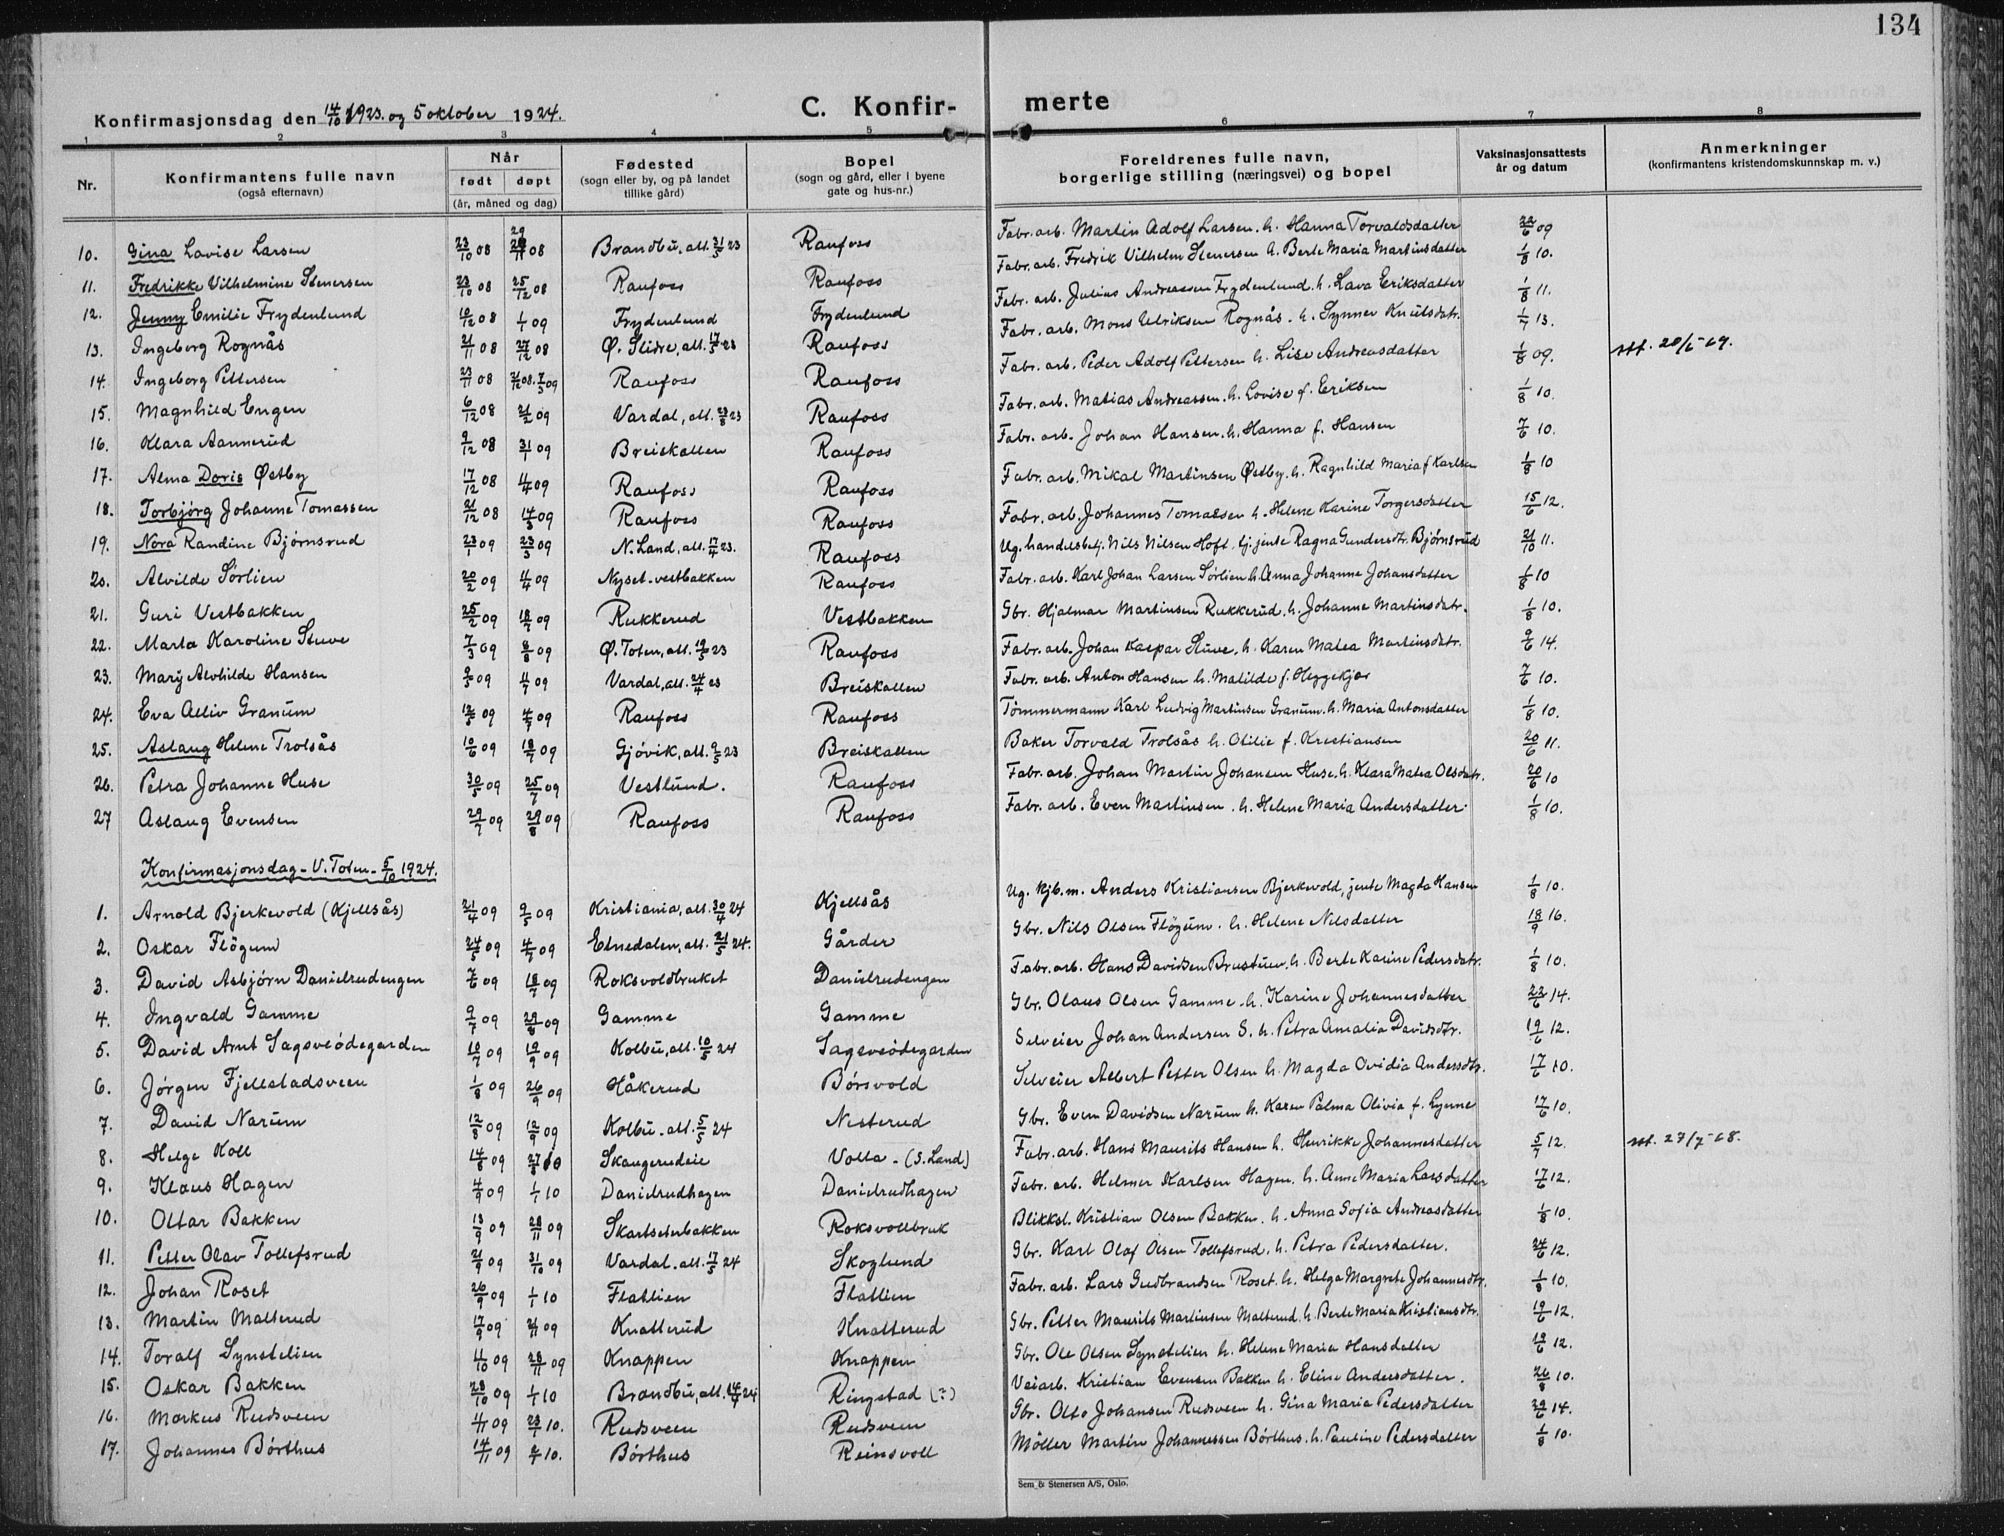 134
Konfirmasjonsdag den 14/10 1923. og 5 oktober 1924.
C. Konfir- merte
1 2 3 4 5 6 7 8
Nr. Konfirmantens fulle navn (også efternavn) Når født døpt (år, måned og dag) Fødested (sogn eller by, og på landet tillike gård) Bopel (sogn og gård, eller i byene gate og hus-nr.) Foreldrenes fulle navn, borgerlige stilling (næringsvei) og bopel Vaksinasjonsattests år og datum Anmerkninger (konfirmantens kristendomskunnskap m. v.)
10. Gina Lovise Larsen 23/10 08 29/11 08 Brandbu, att. 31/5 23 Raufoss Fabr. arb. Martin Adolf Larsen. h. Hanna Torvaldsdatter 22/6 09
11. Fredrikke Vilhelmine Stenersen 23/10 08 25/12 08 Raufoss Raufoss Fabr. arb. Fredrik Vilhelm Stenersen h. Berte Maria Martinsdatter 1/8 10.
12. Jenny Emilie Frydenlund 10/12 08 1/1 09 Frydenlund Frydenlund Fabr. arb. Julius Andreassen Frydenlund. h. Lava Eriksdatter 1/8 11.
13. Ingeborg Rognås 21/11 08 27/12 08 Ø. Slidre, att. 17/5 23 Raufoss Fabr. arb. Mons Ulriksen Rognås. h. Synner Knutsdatr. 1/7 13.
14. Ingeborg Pettersen 23/11 08 21/12 08. 7/3 09 Raufoss Raufoss Fabr. arb. Peder Adolf Pettersen h. Lise Andreasdatter 1/8 09. att. 20/5-69.
15. Magnhild Engen 6/12 08 21/2 09 Vardal, att. 23/8 23 Raufoss Fabr. arb. Matias Andreassen. h. Lovise f. Eriksen 1/8 10.
16. Klara Aannerud 9/12 08 31/1 09 Breiskallen Raufoss Fabr. arb. Johan Hansen. h. Hanna f. Hansen 7/6 10.
17. Alma Doris Østby 17/12 08 4/4 09 Raufoss Raufoss Fabr. arb. Mikal Martinsen Østby. h. Ragnhild Maria f Karlsen 1/8 10
18. Torbjørg Johanne Tomassen 21/12 08 14/3 09 Raufoss Raufoss Fabr. arb. Johannes Tomassen h. Helene Karine Torgersdatter 15/6 12.
19. Nora Randine Bjørnsrud 23/1 09 23/3 09 N. Land, att. 17/4 23. Raufoss Ug. handelsbetj. Nils Nilsen Hoft. tj. jente Ragna Gundersdtr. Bjørnsrud 21/10 11.
20. Alvilde Sørlien 20/2 09 4/4 09 Nyset-vestbakken Raufoss Fabr. arb. Karl Johan Larsen Sørlien h. Anna Johanne Johansdatter 1/8 10
21. Guri Vestbakken 25/2 09 18/7 09 Rukkerud Vestbakken Gbr. Hjalmar Martinsen Rukkerud. h. Johanne Martinsdatr. 1/8 10.
22. Marta Karoline Stuve 7/3 09 8/8 09 Ø. Toten, att. 19/5 23 Raufoss Fabr. arb. Johan Kaspar Stuve. h. Karen Matea Martinsdatr. 9/6 14.
23. Mary Alvhilde Hansen 9/5 09 11/7 09 Vardal, att. 24/4 23 Breiskallen Fabr. arb. Anton Hansen h. Matilde f. Heggekjær 7/6 10.
24. Eva Alliv Granum 12/5 09 4/7 09 Raufoss Raufoss Tømmermann Karl Ludvig Martinsen Granum. h. Maria Antonsdatter 1/8 10.
25. Aslaug Helene Trolsås 10/6 09 18/7 09 Gjøvik, att. 9/5 23 Breiskallen Baker Torvald Trolsås h. Otilie f. Kristiansen 20/6 11.
26. Petra Johanne Huse 30/5 09 25/7 09 Vestlund. Raufoss Fabr. arb. Johan Martin Johansen Huse. h. Klara Matea Olsdatr. 20/6 10
27 Aslaug Evensen 29/7 09 29/8 09 Raufoss Raufoss Fabr. arb. Even Martinsen. h. Helene Maria Andersdatter. 1/8 10.
Konfirmasjonsdag - V. Toten - 5/10 1924.
1. Arnold Bjerkevold (Kjellsås) 21/4 09 9/5 09 Kristiania, att. 30/4 24 Kjellsås Ug. kjb. m. Anders Kristiansen Bjerkevold, jente Magda Hansen 1/8 10.
2. Oskar Fløgum 24/5 09 4/7 09 Etnedalen, att. 21/5 24. Gårder Gbr. Nils Olsen Fløgum. h. Helene Nilsdatter 18/9 16.
3. David Asbjørn Danielrudengen 7/6 09 18/7 09 Roksvoldbruket Danielrudengen Fabr. arb. Hans Davidsen Brustuen. h. Berte Karine Pedersdatr. 1/8 10.
4. Ingvald Gamme 9/7 09 29/8 09 Gamme Gamme Gbr. Olaus Olsen Gamme. h. Karine Johannesdatter 22/6 14.
5. David Arnt Sagsveødegarden 10/7 09 19/9 09 Kolbu, att. 10/5 24 Sagsveødegarden Selveier Johan Andersen S. h. Petra Amalia Davidsdtr. 19/6 12.
6. Jørgen Fjellstadsveen 1/8 09 26/9 09 Håkerud Børsvold Selveier Albert Petter Olsen h. Magda Ovidia Andersdtr. 17/6 10.
7. David Narum 12/8 09 12/9 09 Kolbu - att. 5/5 24 Nesterud Gbr. Even Davidsen Narum h. Karen Palma Olivia f. Lynne 17/6 10.
8. Helge Koll 14/8 09 27/8 10 Skangerudeie Volla - (S. Land) Fabr. arb. Hans Maurits Hansen h. Henrikke Johannesdatter 5/7 12. att. 27/7-68.
9. Klaus Hagen 4/9 09 1/1 10 Danielrudhagen Danielrudhagen Fabr. arb. Helmer Karlsen Hagen. h. Anne Maria Larsdatter 17/6 12.
10. Ottar Bakken 13/9 09 28/11 09 Skartseterbakken Roksvollbruk Blikksl. Kristian Olsen Bakken. h. Anna Sofia Andreasdatter 1/8 10.
11. Petter Olav Tollefsrud 21/9 09 31/10 09 Vardal. att. 17/5 24 Skoglund Gbr. Karl Olaf Olsen Tollefsrud. h. Petra Pedersdatter. 24/6 12.
12. Johan Roset 26/9 09 1/1 10 Flatlien Flatlien Fabr. arb. Lars Gudbrandsen Roset. h. Helga Margrete Johannesdtr. 1/8 10.
13. Martin Malterud 17/9 09 21/11 09 Knatterud Knatterud Gbr. Petter Maurits Martinsen Malterud. h. Berte Maria Kristiansdtr. 19/6 12.
14. Toralf Synstelien 11/10 09 28/11 09 Knappen Knappen Gbr. Ole Olsen Synstelien h. Helene Maria Hansdatter 19/6 12.
15. Oskar Bakken 28/10 09 1/1 10 Brandbu, att. 14/4 24 Ringstad (?) Veiarb. Kristian Evensen Bakken h. Eline Andersdatter. 26/8 10.
16. Markus Rudsveen 4/11 09 23/1 10. Rudsveen Rudsveen Gbr. Otto Johansen Rudsveen h. Gina Maria Pedersdatter 29/6 14.
17. Johannes Børthus 14/11 09 2/1 10. Børthus Reinsvoll Møller Martin Johannessen Børthus. h. Pauline Pedersdatter 1/8 10.
Sem & Stenersen A/S, Oslo.